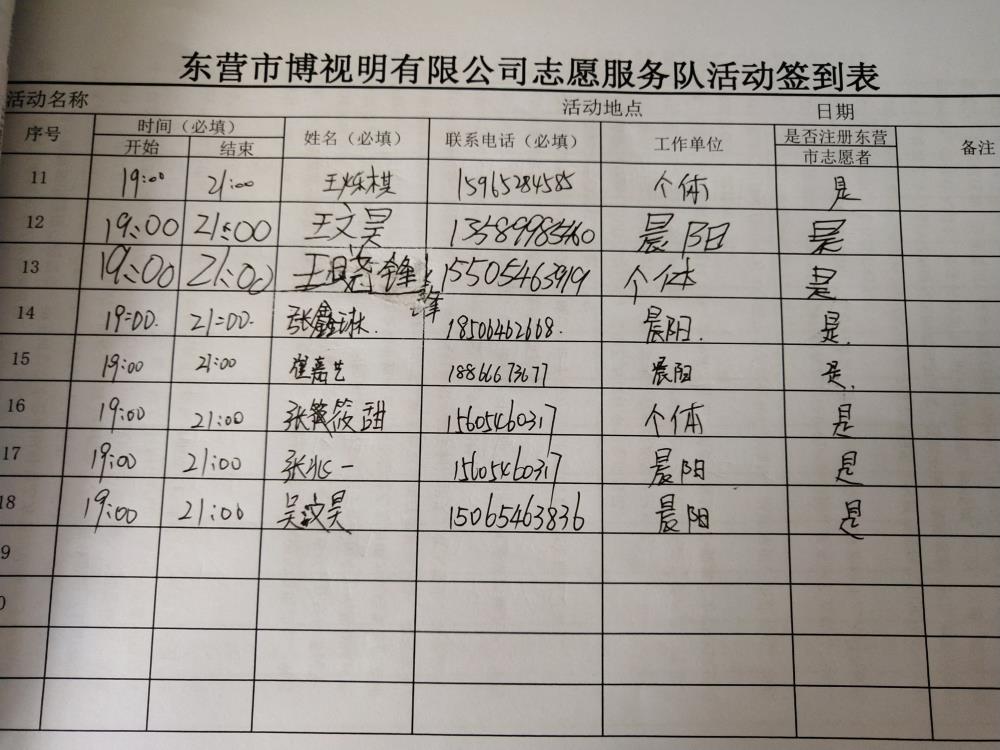 东营市博视明有限公司志愿服务队活动签到表
活动名称 活动地点 日期
序号 时间（必填） 姓名（必填） 联系电话（必填） 工作单位 是否注册东营市志愿者 备注
开始 结束
11 19:00 21:00 王烁棋 15965284585 个体 是
12 19:00 21:00 王文昊 晨阳 是
13 19:00 21:00 王晓锋 15505463919 个体 是
14 19:00 21:00 张鑫琳 18506462668 晨阳 是
15 19:00 21:00 崔嘉艺 18866673677 晨阳 是
16 19:00 21:00 张筱甜 15605460317 个体 是
17 19:00 21:00 张兆一 15605460317 晨阳 是
18 19:00 21:00 吴汶昊 15065463836 晨阳 是
9
0